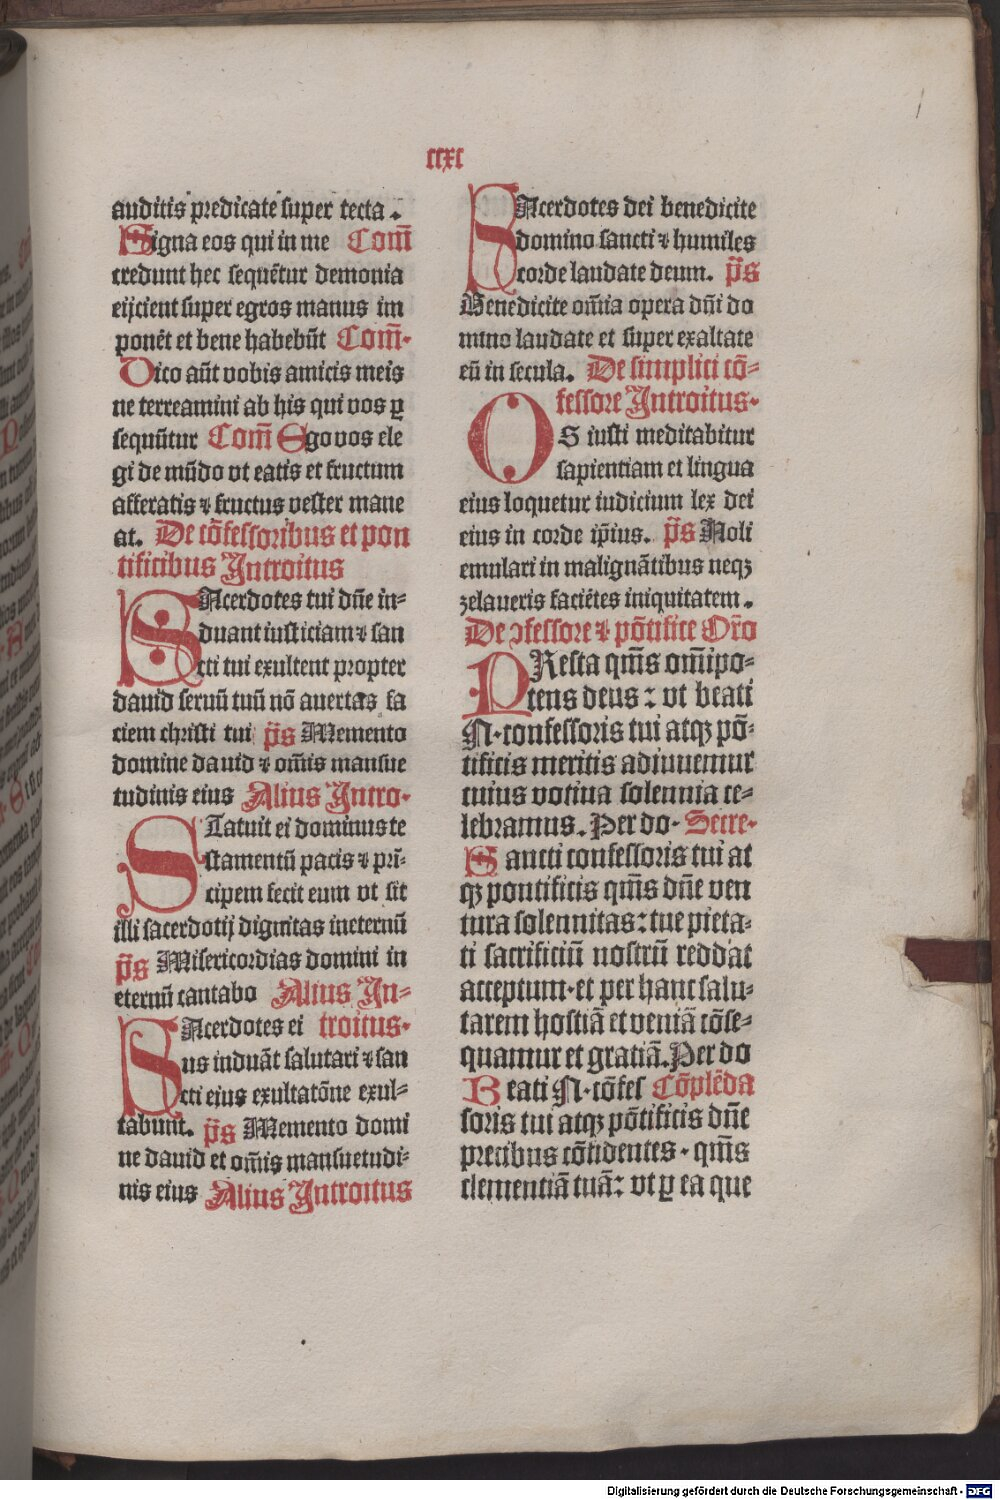 ccxc
auditis predicate super tecta.
Signa eos qui in me Com̄
credunt hec sequētur demonia
eijcient super egros manus im
ponēt et bene habebūt Com̄.
Dico aūt vobis amicis meis
ne terreamini ab his qui vos ꝑ
sequūtur Com̄ Ego vos ele
gi de mūdo vt eatis et fructum
afferatis ⁊ fructus vester mane
at. De cōfessoribus et pon
tificibus Introitus
SAcerdotes tui dn̄e in-
duant iusticiam ⁊ san
cti tui exultent propter
dauid seruū tuū nō auertas fa
ciem christi tui p̄s Memento
domine dauid ⁊ om̄is mansue
tudinis eius Alius Intro.
STatuit ei dominus te
stamentū pacis ⁊ prī-
cipem fecit eum vt sit
illi sacerdotij dignitas ineternū
p̄s Misericordias domini in
eternū cantabo Alius In-
SAcerdotes ei troitus.
us induāt salutari ⁊ san
cti eius exultatōne exul-
tabunt. p̄s Memento domi
ne dauid et om̄is mansuetudi-
nis eius Alius Introitus
SAcerdotes dei benedicite
domino sancti ⁊ humiles
corde laudate deum. p̄s
Benedicite om̄ia opera dn̄i do
mino laudate et super exaltate
eū in secula. De simplici cō-
fessore Introitus.
OS iusti meditabitur
sapientiam et lingua
eius loquetur iudicium lex dei
eius in corde ip̄ius. p̄s Noli
emulari in malignātibus neqꝫ
zelaueris faciētes iniquitatem.
De ↄfessore ⁊ pōtifice Or̄o
PResta qm̄s om̄ipo-
tens deus: vt beati
N. confessoris tui atqꝫ pō-
tificis meritis adiuuemur
cuius votiua solennia ce-
lebramus. Per do. Secre.
Sancti confessoris tui at
qꝫ pontificis qm̄s dn̄e ven
tura solennitas: tue pieta-
ti sacrificiū nostrū reddat
acceptum. et per hanc salu-
tarem hostiā et veniā cōse-
quamur et gratiā. Per do
Beati N. cōfes Cōplēda
soris tui atqꝫ pōtificis dn̄e
precibus cōfidentes. qm̄s
clementiā tuā: vt ꝑ ea que
Digitalisierung gefördert durch die Deutsche Forschungsgemeinschaft - DFG